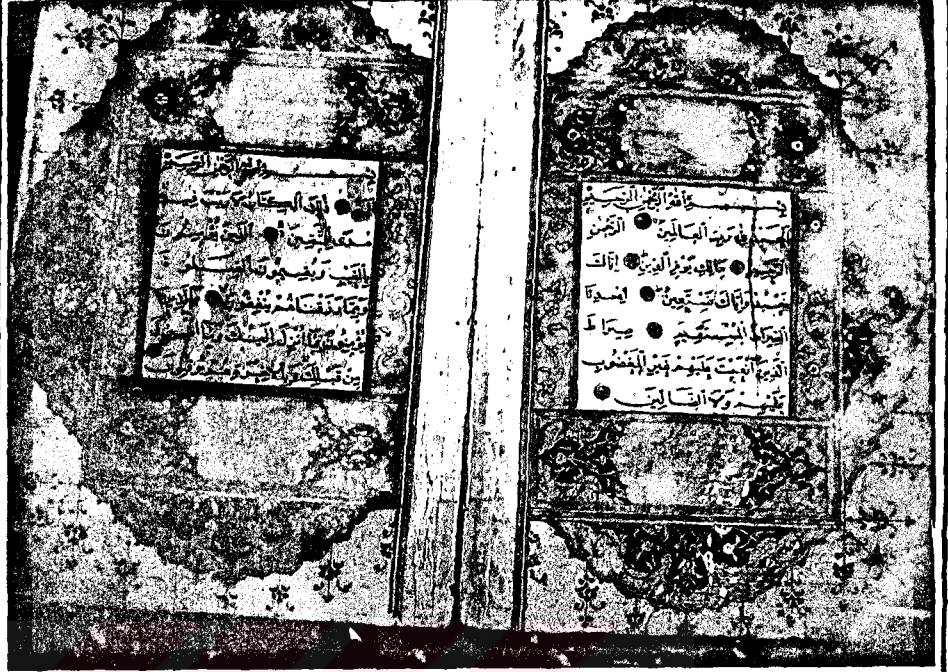 بسم الله الرحمن الرحيم
الحمد لله رب العالمين الرحمن
الرحيم مالك يوم الدين إياك
نعبد وإياك نستعين اهدنا
الصراط المستقيم صراط
الذين أنعمت عليهم غير المغضوب
عليهم ولا الضالين
بسم الله الرحمن الرحيم
الم ذلك الكتاب لا ريب فيه
هدى للمتقين الذين يؤمنون
بالغيب ويقيمون الصلاة
ومما رزقناهم ينفقون والذين
يؤمنون بما أنزل إليك وما أنزل
من قبلك وبالآخرة هم يوقنون